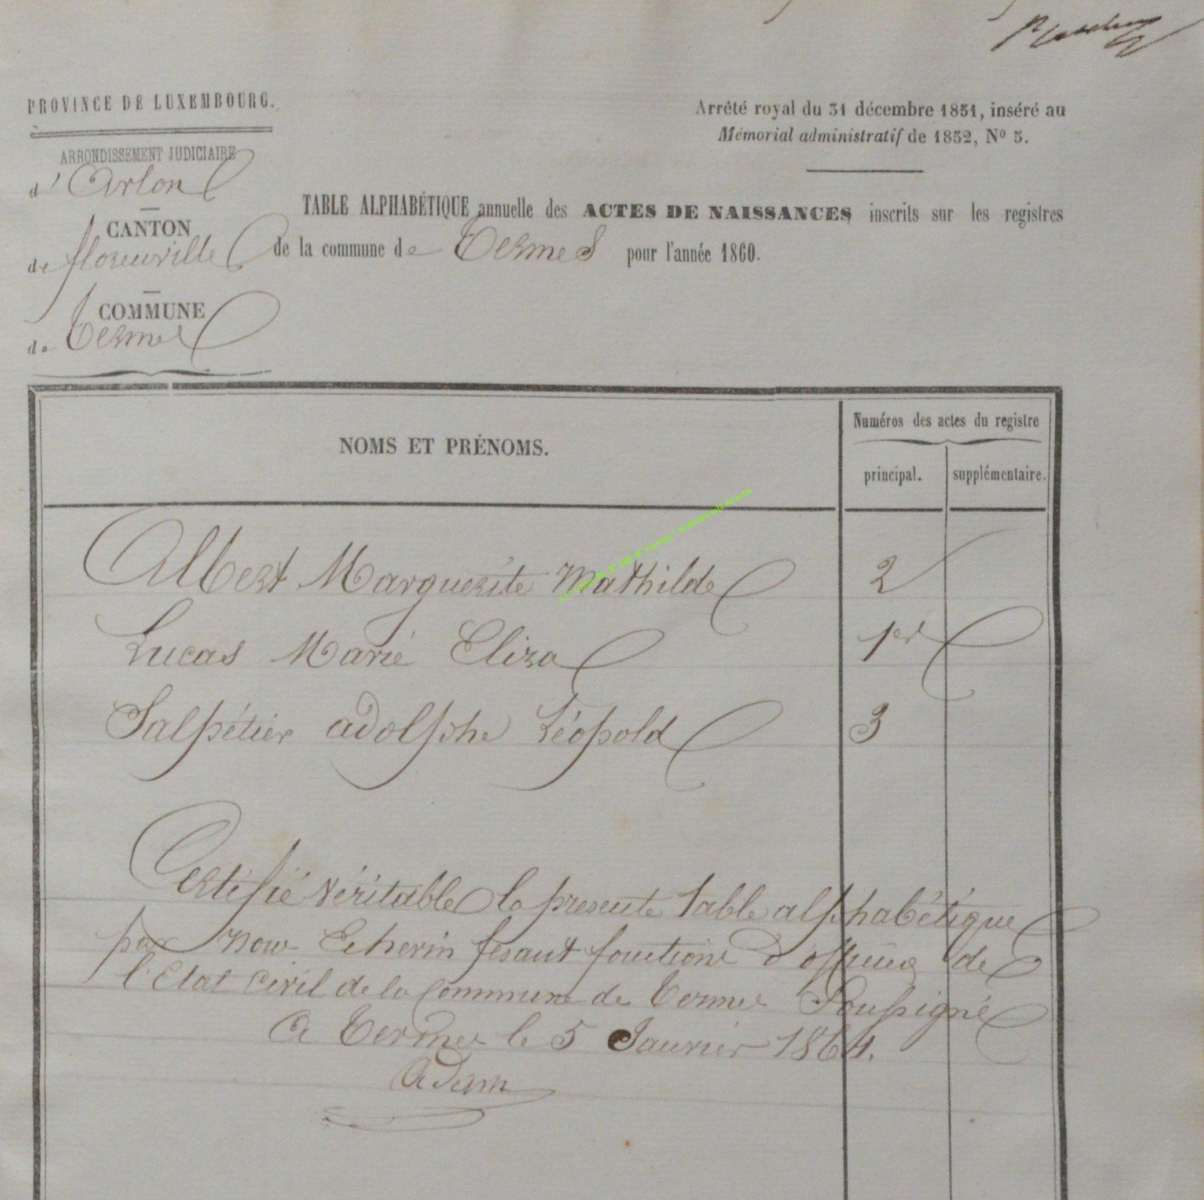 PROVINCE DE LUXEMBOURG.
ARRONDISSEMENT JUDICIAIRE
d'Arlon
CANTON
de florenville
COMMUNE
de Termes
Arrêté royal du 31 décembre 1851, inséré au
Mémorial administratif de 1852, Nº 5.
TABLE ALPHABÉTIQUE annuelle des ACTES DE NAISSANCES inscrits sur les registres
de la commune de Termes pour l'année 1860.
NOMS ET PRÉNOMS.
Numéros des actes du registre
principal. supplémentaire.
Albert Marguerite Mathilde 2
Lucas Marie Eliza 1er
Salpétier adolphe Léopold 3
Certifié véritable la presente table alphabétique
par nous Echevin fesant fonctions d'officier de
l'Etat civil de la Commune de Termes Soussigné
A Termes le 5 Janvier 1861.
Adam